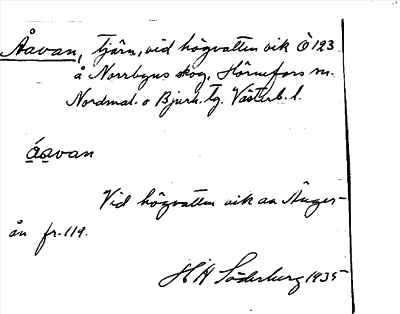 Åavan, tjärn, vid högvatten vik Ö 123
å Norrbyns skog, Hörnefors sn.
Nordmal. o Bjurh. tg. Västerb. l.
áavan
Vid högvatten vik av Änger-
ån fr. 119.
H A Söderberg 1935